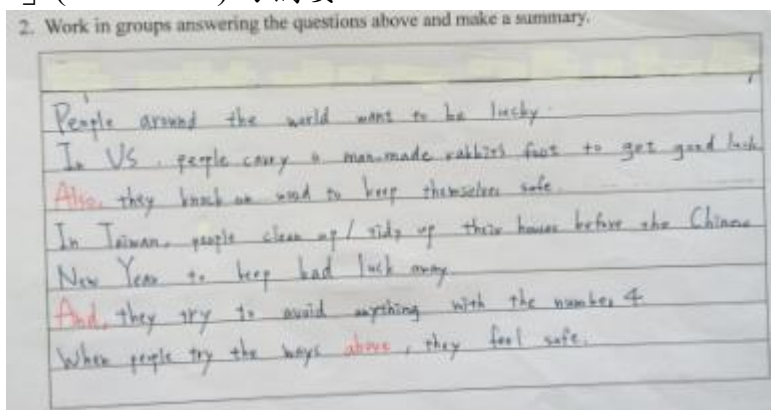 2. Work in groups answering the questions above and make a summary.
People around the world want to be lucky.
In US, people carry a man-made rabbits foot to get good luck
Also, they knock on wood to keep themselves safe.
In Taiwan, people clean up / tidy up their houses before the Chinese
New Year to keep bad luck away.
And, they try to avoid anything with the number 4.
When people try the ways above, they feel safe.